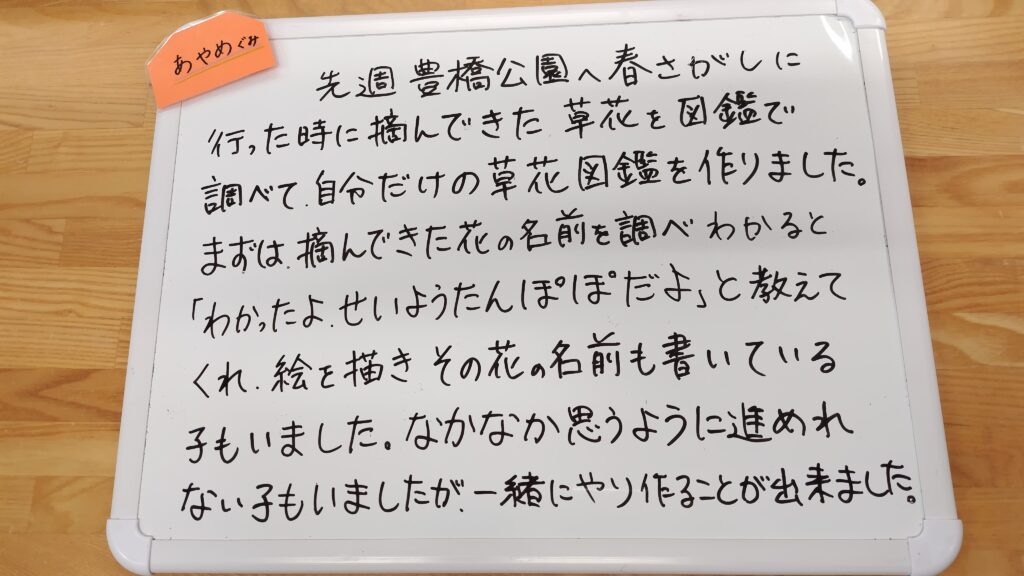 あやめぐみ
先週 豊橋公園へ春さがしに
行った時に摘んできた草花を図鑑で
調べて、自分だけの草花図鑑を作りました。
まずは、摘んできた花の名前を調べわかると
「わかったよ、せいようたんぽぽだよ」と教えて
くれ、絵を描きその花の名前も書いている
子もいました。なかなか思うように進めれ
ない子もいましたが、一緒にやり作ることが出来ました。